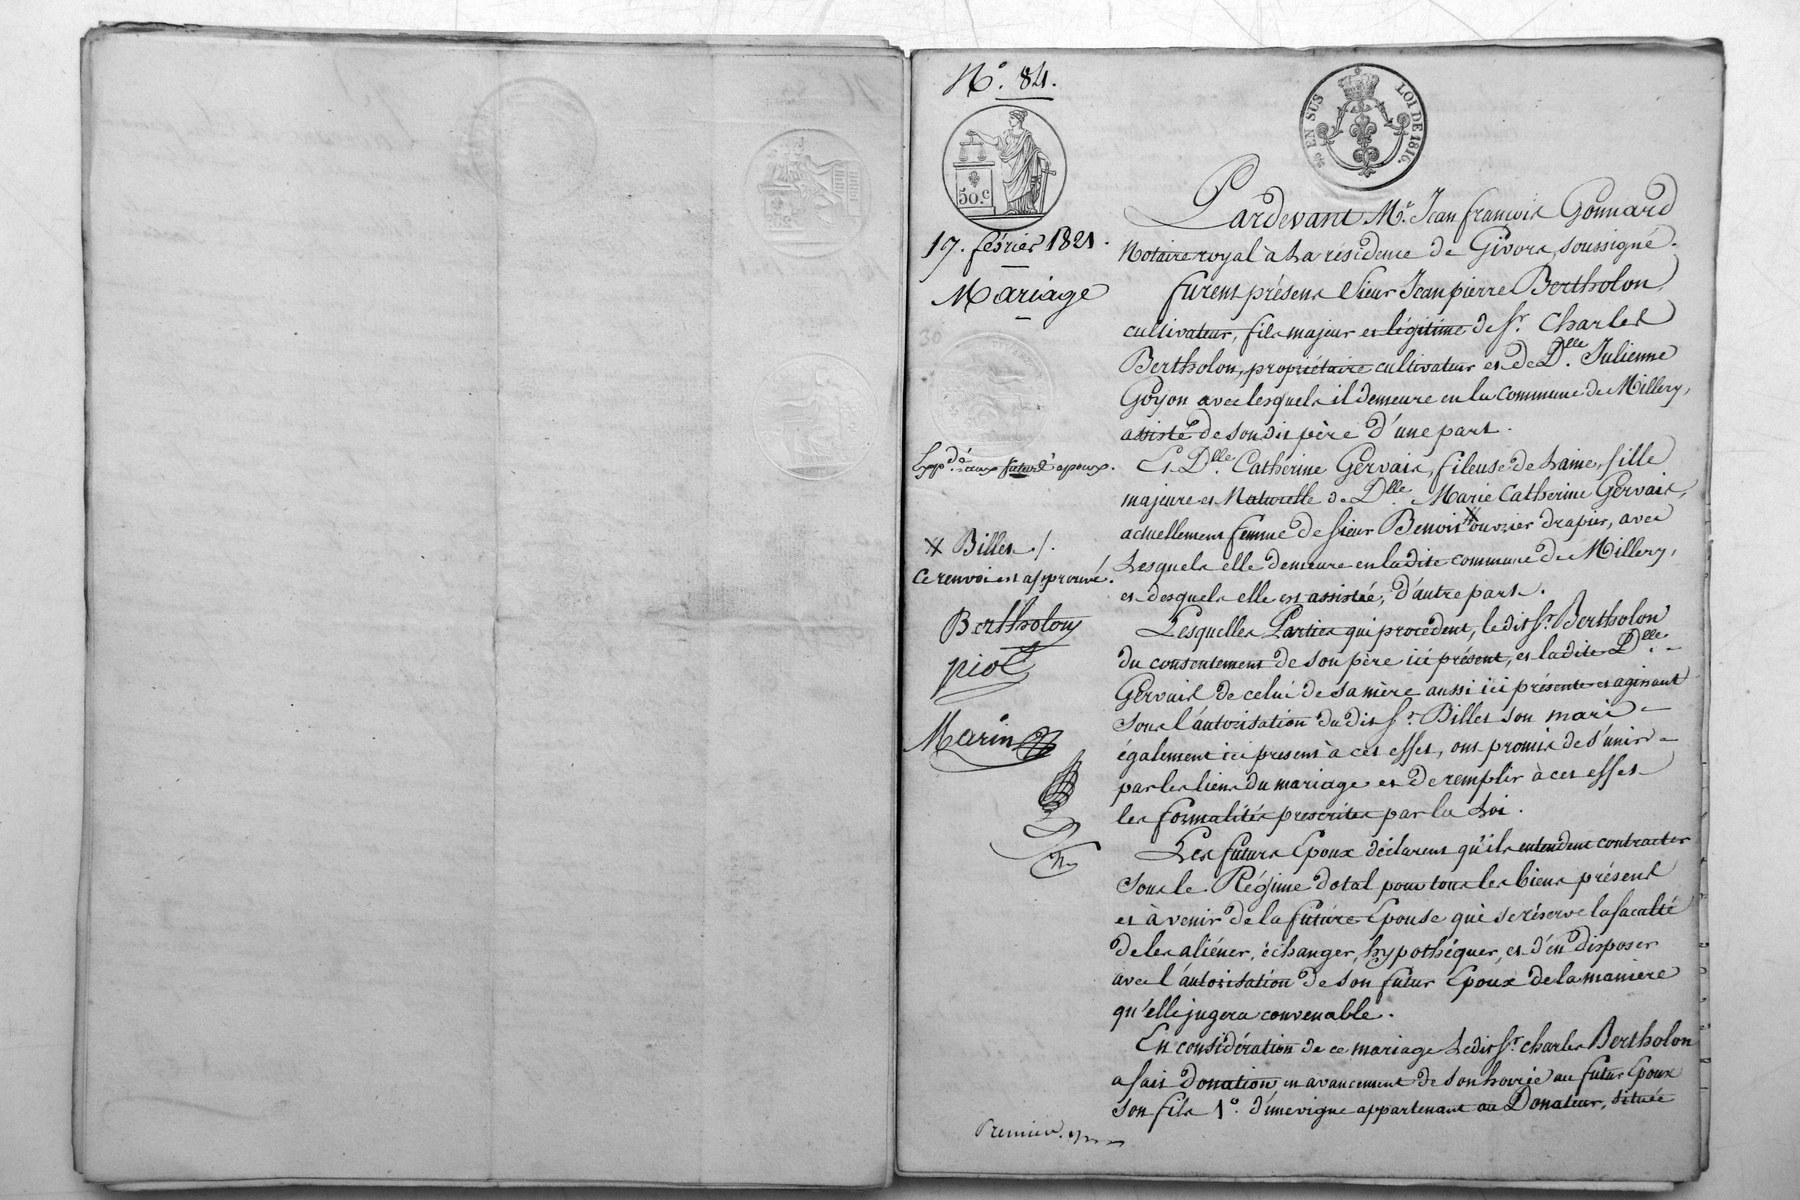 N.º 84.
EN SUS
LOI DE 1816.
50.c
17. février 1821.
Mariage
30
Exp.dé aux futurs époux.
X Billet ./.
Ce renvoi est approuvé.
Bertholon
piot
Marin
Pardevant M.e Jean françois Gonnard
Notaire royal à La résidence de Givors, soussigné.
furent présens Sieur Jean pierre Bertholon
cultivateur, fils majeur et légitime de S.r Charles
Bertholon, propriétaire cultivateur et de D.lle Julienne
Goyon avec lesquels il demeure en la commune de Millery,
assisté de son dit père d'une part.
Et D.lle Catherine Gervais, fileuse de Laine, fille
majeure et Naturelle de D.lle Marie Catherine Gervais,
actuellement femme de sieur Benoit X ouvrier drapier, avec
Lesquels elle demeure en la dite commune de Millery,
et desquels elle est assistée, d'autre part.
Lesquelles Parties qui procèdent, le dit S.r Bertholon
du consentement de son père ici présent, et la dite D.lle
Gervais de celui de sa mère aussi ici présente et agissant
sous l'autorisation du dit S.r Billet son mari
également ici présent à cet effet, ont promis de s'unir
par les liens du mariage et de remplir à cet effet
les formalités prescrites par la Loi.
Les futurs Epoux déclarent qu'ils entendent contracter
sous le Régime dotal pour tous les biens présens
et à venir de la future Epouse qui se réserve la faculté
de les aliéner, échanger, hypothéquer, et d'en disposer
avec l'autorisation de son futur Epoux de la manière
qu'elle jugera convenable.
En considération de ce mariage Ledit S.r charles Bertholon
a fait donation en avancement de son hoirie au futur Epoux
son fils 1.º d'une vigne appartenant au Donateur, située
Premier.